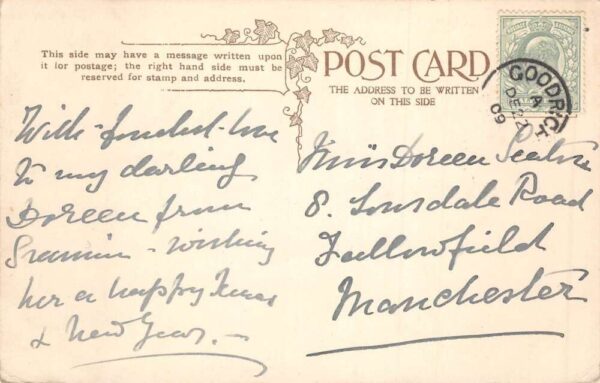 This side may have a message written upon
it for postage; the right hand side must be
reserved for stamp and address.
POST CARD
THE ADDRESS TO BE WRITTEN
ON THIS SIDE
GOODRICH
A
DE 22
09
With fondest love
to my darling
Doreen from
wishing
her a happy Xmas
& New Year. -
Miss Doreen Seaton
8. Lonsdale Road
Fallowfield
Manchester